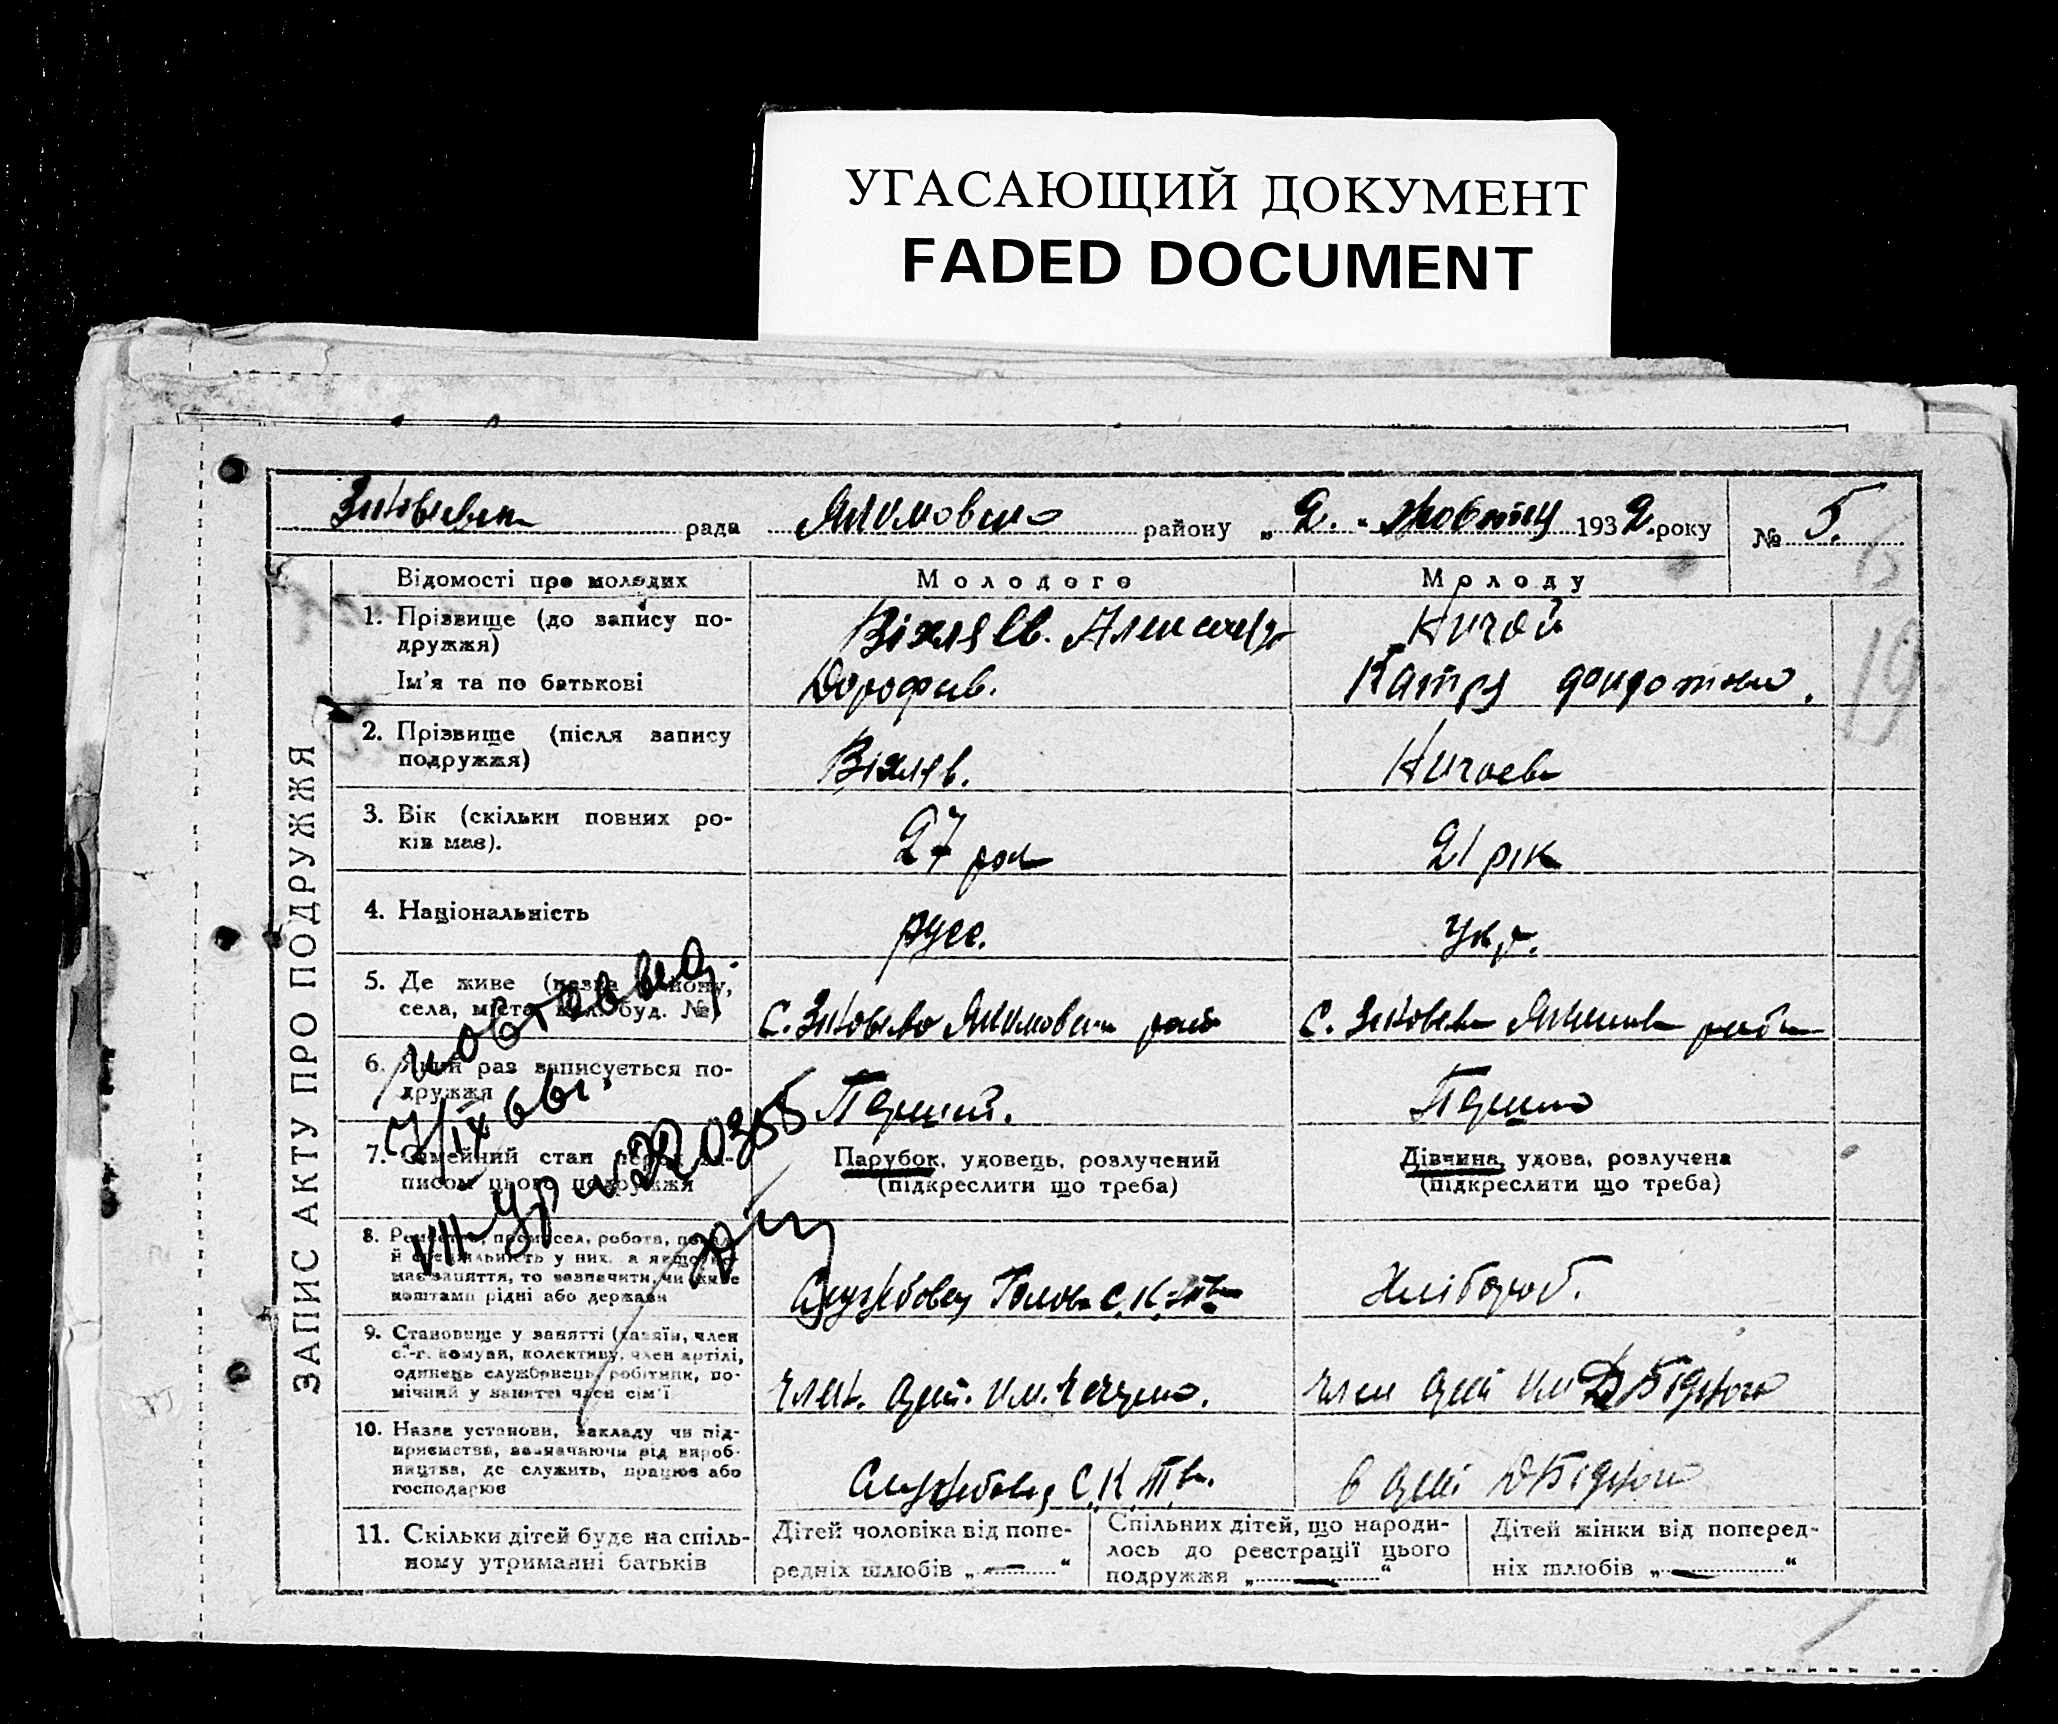 УГАСАЮЩИЙ ДОКУМЕНТ
FADED DOCUMENT
рада Якимовско району „ 2. " жовтня 1932. року № 5.
ЗАПИС АКТУ ПРО ПОДРУЖЖЯ
Відомості про молодих
Молодого
Молоду
1. Прізвище (до запису по-
дружжя)
Ім'я та по батькові
Дорофив.
Катря
19
2. Прізвище (після запису
подружжя)
3. Вік (скільки повних ро-
ків має).
27 рок
21 рік
4. Національність
русс.
Укр.
5. Де живе
села, міста, буд. №)
с. Зиновево Якимовськ
с. Зиновево
6. Який раз записується по-
дружжя
Перший.
Перша
7. Сімейний стан перед за-
писом цього подружжя
Парубок, удовець, розлучений
(підкреслити що треба)
Дівчина, удова, розлучена
(підкреслити що треба)
8. Ремество, промисел, робота, посада
й спеціяльність у них, а якщо не
має заняття, то зазначити, чи живе
коштами рідні або держави
Службовец Голова С.К.
Хлібороб.
9. Становище у занятті (хазяїн, член
с.-г. комуни, колективу, член артілі,
одинець службовець, робітник, по-
мічний у занятті член сім'ї
член. арт. им.
член арт им Д Бідного
10. Назва установи, закладу чи під-
приємства, зазначаючи від вироб-
ництва, де служить, працює або
господарює
Службовец С.К.Т
в арт Д Бідного
11. Скільки дітей буде на спіль-
ному утриманні батьків
Дітей чоловіка від попе-
редніх шлюбів „ — "
Спільних дітей, що народи-
лось до реєстрації цього
подружжя „ — "
Дітей жінки від поперед-
ніх шлюбів „ — "